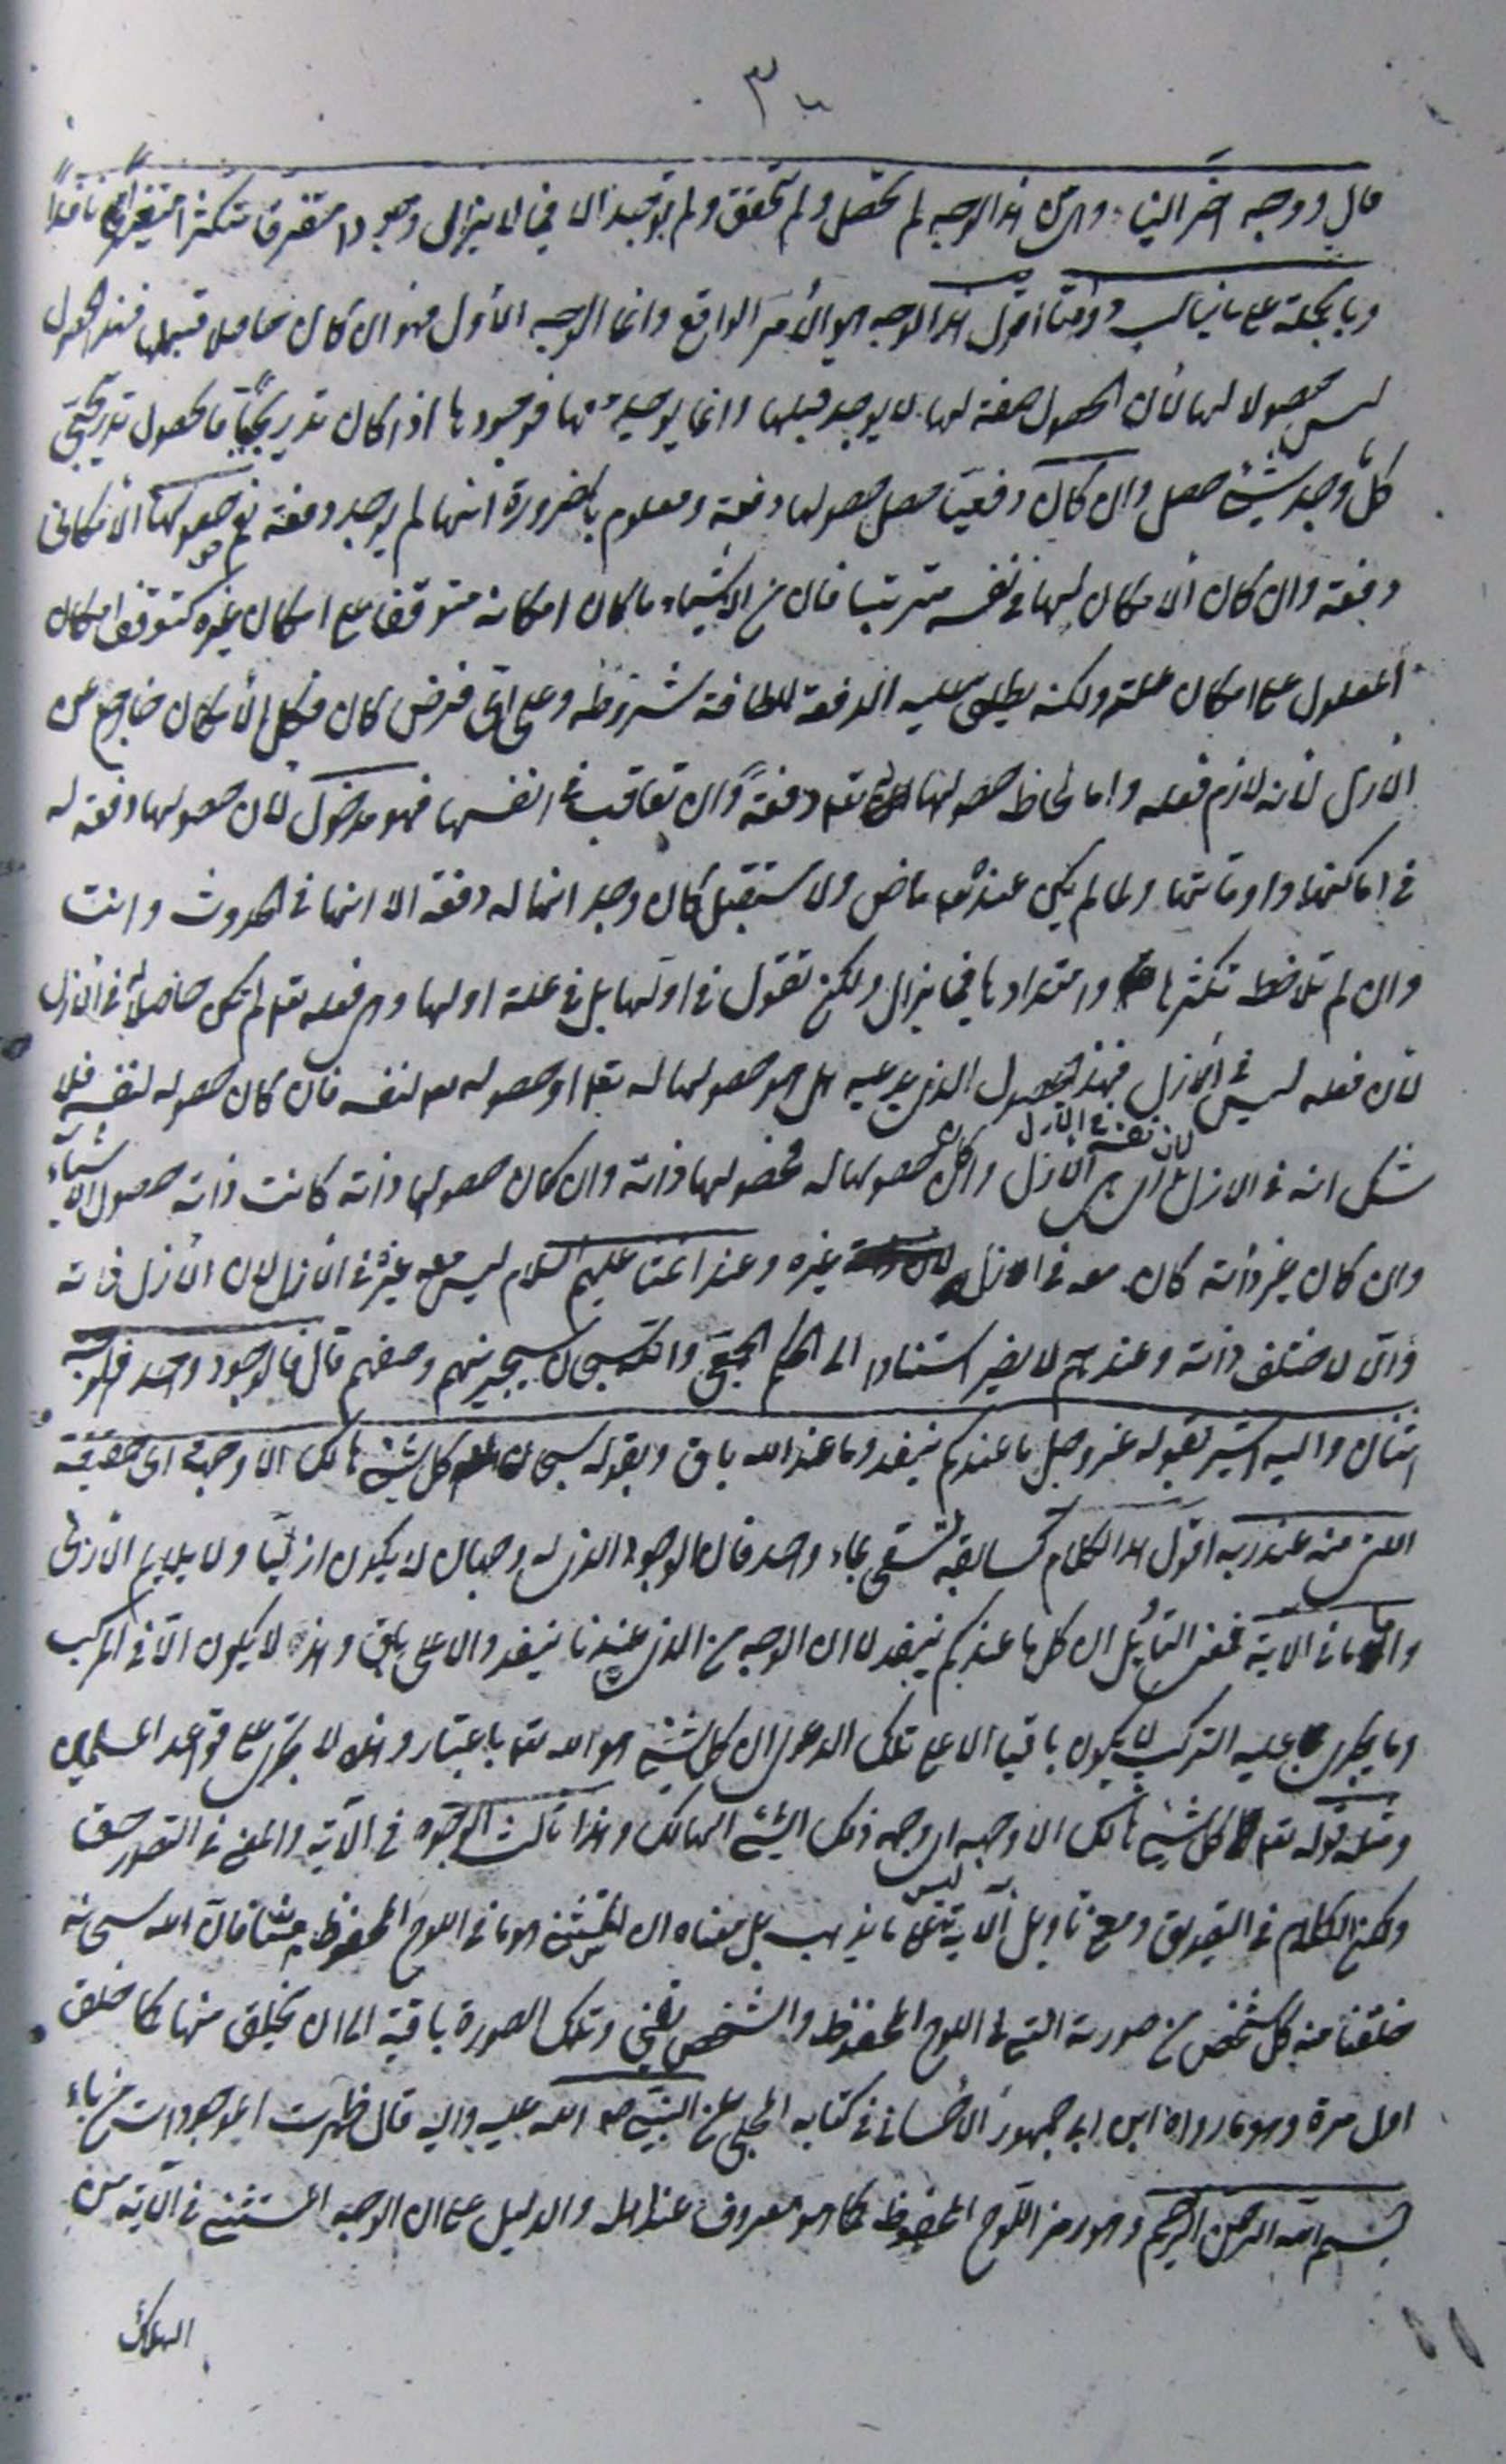 قال ووجه اخر الينا وهي من هذا الوجه لم تحصل ولم تحقق ولم توجد الا فيما لا يزال وجودا متفرقا متكثرا متغيرا نافدا
وبالجملة على ما يناسب ذواتنا اقول هذا الوجه هو الأمر الواقع واما الوجه الأول فهو ان كان حاصلا قبلها فهذا الحصول
ليس حصولا لها لأن الحصول صفة لها لا يوجد قبلها وانما يوجد بها فوجودها اذا كان تدريجيا فالحصول تدريجي
كل ما وجد شيء حصل وان كان دفعيا حصل حصولها دفعة ومعلوم بالضرورة انها لم يوجد دفعة نعم هو حصولها الأمكاني
دفعة وان كان الأمكان لها في نفسه مترتبا فان من الأشياء ما كان امكانه متوقفا على امكان غيره كتوقف امكان
المعلول على امكان علته ولكنه يطلق عليه الدفعة للطافة شروطه وعلى أي فرض كان فكل الأمكان خارج عن
الأزل لأنه لازم فعله واما لحاظ حصولها له تعم دفعة وان تعاقبت في انفسها فهو مدخول لأن حصولها دفعة له
في اماكنها واوقاتها ولما لم يكن عنده تعم ماض ولا مستقبل كان وجدانها له دفعة الا انها في الحدوث وانت
وان لم تلاحظ تكثرها وامتدادها فيما يزال ولكن تقول في اولها بل في علة اولها وهي فعله تعم لم تكن حاصلا في الأزل
لأن فعله ليس في الأزل فهذا الحصول الذي يدعيه هل هو حصولها له تعم او حصوله تعم لنفسه فان كان حصوله لنفسه فلا
شك انه في الازل لان نفسه في الأزل بل هي الأزل وان كان حصولها له فحصولها ذاته وان كان حصولها ذاته كانت ذاته حصول الأشياء
وان كان غير ذاته كان معه في الازل غيره وعند ائمتنا عليهم السلام ليس معه غيره في الأزل لان الأزل ذاته
وان لا تختلف ذاته وعندهم لا يضير استنادا الى الحكم الحق والله سبحانه سيجزيهم وصفهم قال فالوجود واحد والوجه
اثنان واليه اشير بقوله عز وجل ما عندكم ينفد وما عند الله باق وبقوله سبحانه كل شيء هالك الا وجهه اي حقيقته
التي منه عند ربه اقول هذا الكلام كسابقه تسقى بماء واحد فان الوجود الذي له وجهان لا يكون ازليا ولا يلايم الأزلي
واما ما في الآية فمعنى التأويل ان كل ما عندكم ينفد لا ان الوجه من الذي عندنا ينفد والاعلى باق وهذا لا يكون الا في المركب
وما يجري عليه التركيب لا يكون باقيا الا على تلك الدعوى ان كل شيء هو الله تعم باعتبار وهذه لا تجري على قواعد المسلمين
ومثله قوله تعم كل شيء هالك الا وجهه اي وجه ذلك الشيء الهالك وهذا ثالث الوجوه في الآية والمعنى في التصور حق
ولكن الكلام في التصديق ومع تأويل الآية ليس على ما يذهب بل معناه ان المستثنى هو ما في اللوح المحفوظ فان الله سبحانه
خلقنا منه كل شخص من صورته التي في اللوح المحفوظ والشخص يفنى وتلك الصورة باقية الى ان يخلق منها كما خلق
اول مرة وهو ما رواه ابن ابي جمهور الأحسائي في كتابه المجلي عن النبي صلى الله عليه واله قال ظهرت الموجودات من باء
بسم الله الرحمن الرحيم وهو رمز اللوح المحفوظ كما هو معروف عند اهله والدليل على ان الوجه المستثنى في الآية من
الهلاك